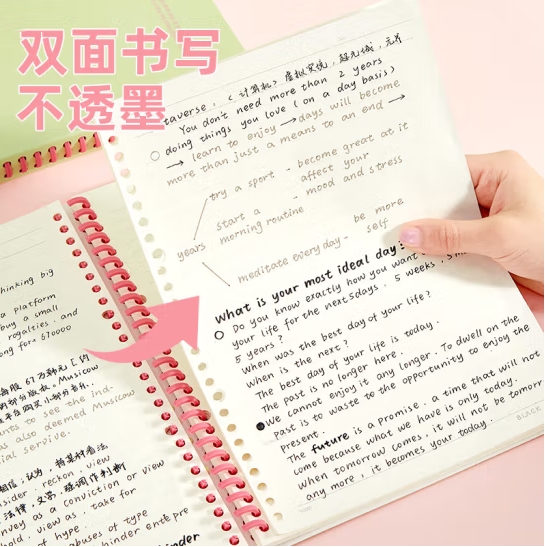 双面书写
不透墨
taverse, (计算机) 虚拟实境, 超元域, 元界
You don't need more than 2 years
doing things you love (on a day basis)
→ learn to enjoy → days will become
more than just a means to an end →
try a sport - become great at it
affect your
mood and stress
start a -
morning routine
years
meditate everyday - be more
self
What is your most ideal day?
Do you know exactly how you want
your life for the next 5 days. 5 weeks,
5 years?
When was the best day of your life?
When is the next?
The best day of your life is today.
The past is no longer here.
We cannot enjoy it any longer. To dwell on the
past is to waste to the opportunity to enjoy the
present.
The future is a promise. a time that will not
come because what we have is only today.
When tomorrow comes, it will not be tomorr
any more, it becomes your today.
BLACK
thinking big
a platform
buy a small
royalties. and
ong for ₩ 67000
67万韩元
Musicow
ants to see the ind-
was also deemed Musicow
cial service.
相信; 认为,
sider. reckon. view
法律, 文学, 强调作判断
nvey as a conviction or view
hold. view as. take for
d abuses of type
hinder ente pre
hinder